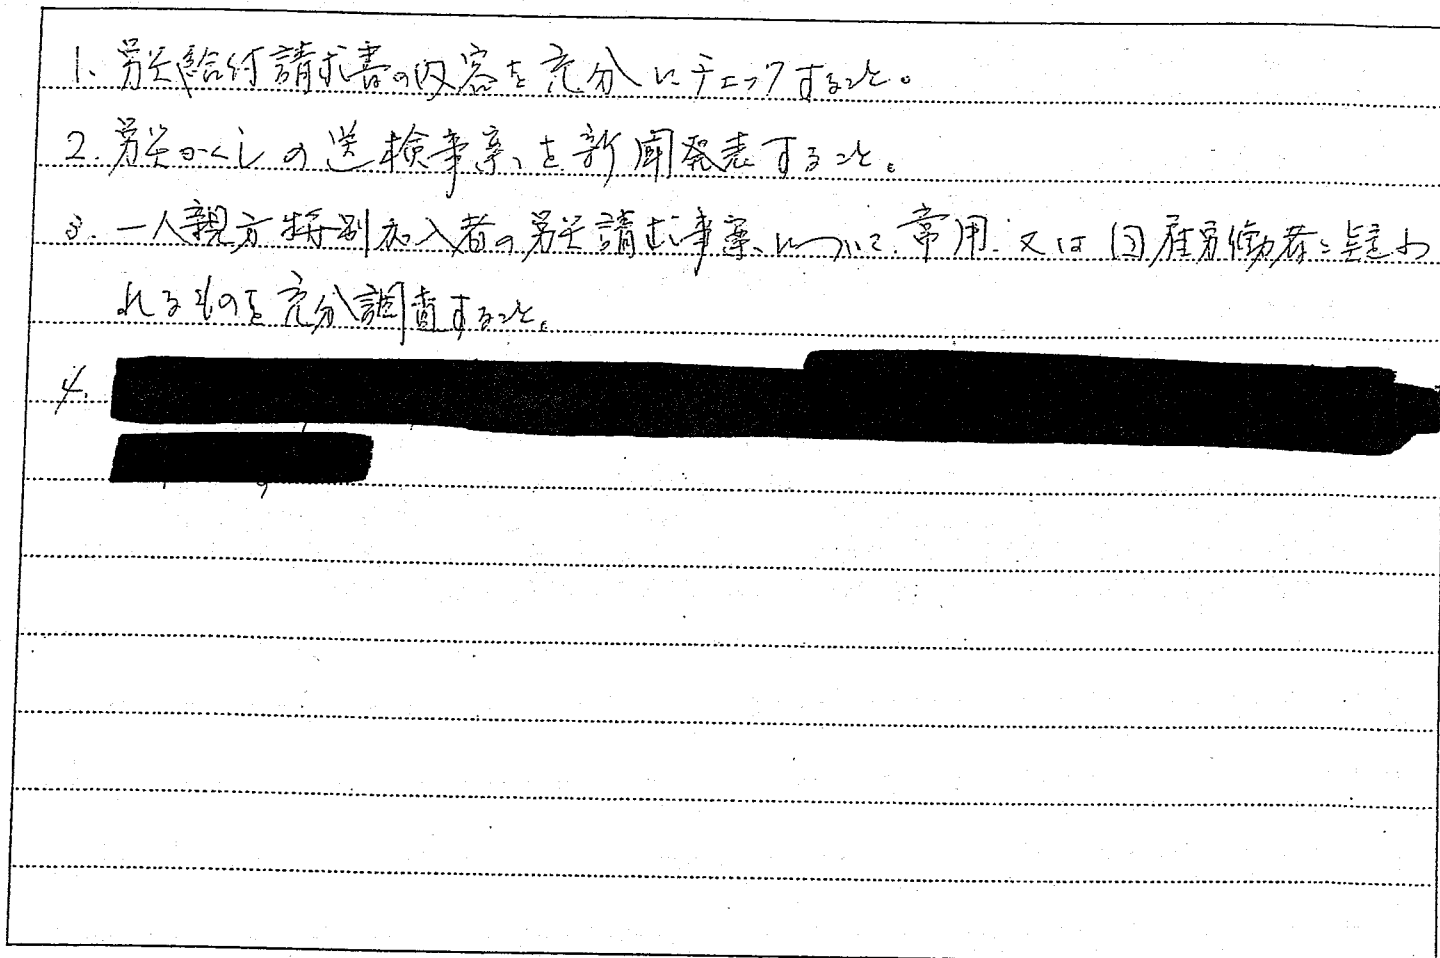 1. 労災給付請求書の内容を充分にチェックすること。
2. 労災かくしの送検事案を新聞発表すること。
3. 一人親方特別加入者の労災請求事案について、常用、又は日雇労働者と疑わ
れるものを充分調査すること。
4.